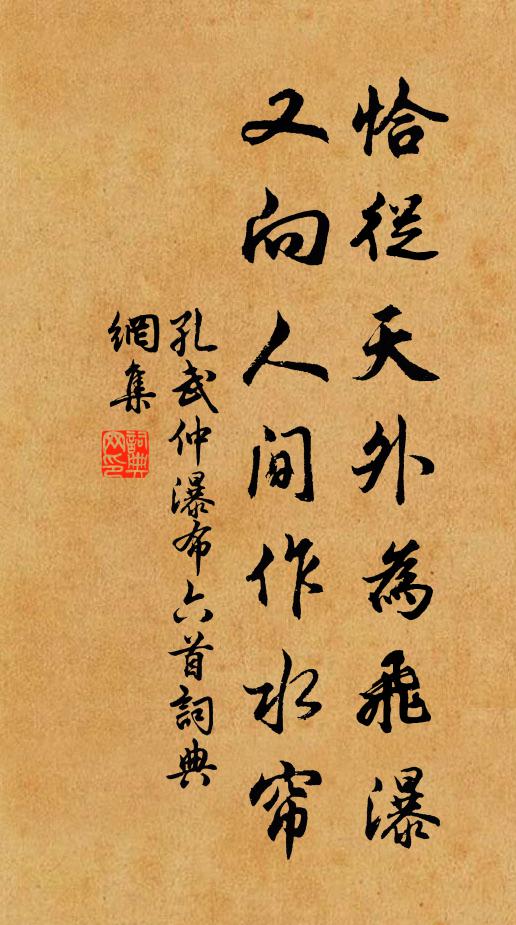 恰從天外為飛瀑
又向人間作水帘
孔武仲瀑布六首詞典
網集
詞典網印